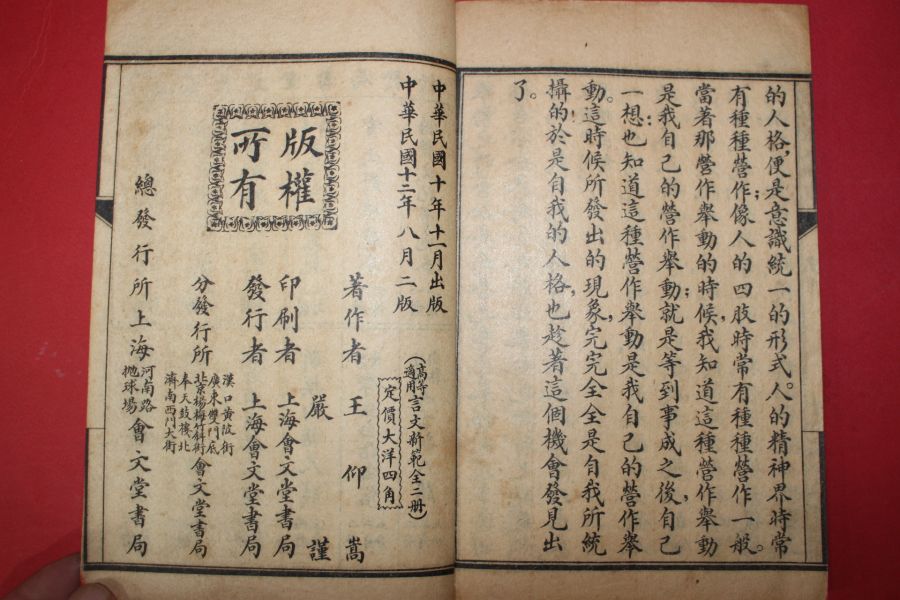 的人格，便是意識統一的形式。人的精神界時常
有種種營作；像人的四肢時常有種種營作一般。
當著那營作舉動的時候，我知道這種營作舉動
是我自己的營作舉動；就是等到事成之後，自己
一想；也知道這種營作舉動是我自己的營作舉
動。這時候所發出的現象，完完全全是自我所統
攝的；於是自我的人格，也趁著這個機會發見出
了。
中華民國十年十一月出版
中華民國十二年八月二版
版權
所有
(高等適用言文新範全二册)
定價大洋四角
著作者 王仰嵩
嚴謹
印刷者 上海會文堂書局
發行者 上海會文堂書局
分發行所
漢口黃陂街
廣東雙門底
北京楊梅竹斜街
奉天鼓樓北
濟南西門大街
會文堂書局
總發行所上海
河南路
抛球場
會文堂書局